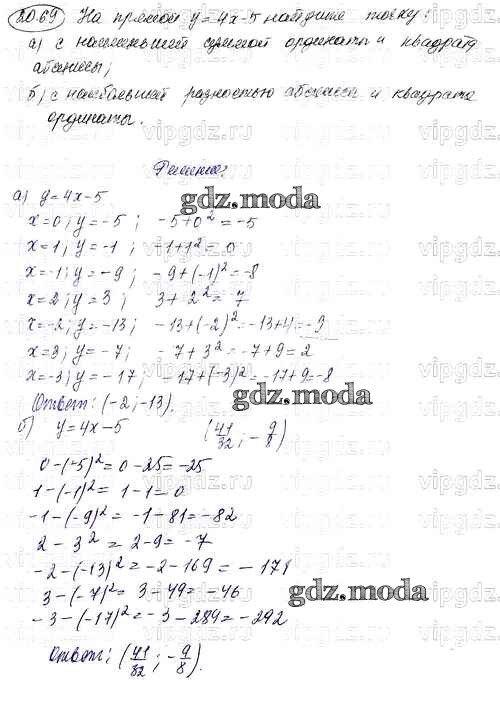 20.69 На прямой y=4x-5 найдите точку:
а) с наименьшей суммой ординаты и квадрата
абсциссы;
б) с наибольшей разностью абсциссы и квадрата
ординаты.
Решение:
а) y=4x-5
gdz.moda
x=0; y=-5; -5+0²=-5
x=1; y=-1; -1+1²=0
x=-1; y=-9; -9+(-1)²=-8
x=2; y=3; 3+2²=7
x=-2; y=-13; -13+(-2)²=-13+4=-9
x=3; y=-7; -7+3²=-7+9=2
x=-3; y=-17; -17+(-3)²=-17+9=-8
gdz.moda
Ответ: (-2;-13).
б) y=4x-5 (41/32; -9/8)
0-(-5)²=0-25=-25
1-(-1)²=1-1=0
-1-(-9)²=-1-81=-82
2-3²=2-9=-7
-2-(-13)²=-2-169=-171
3-(-7)²=3-49=-46
gdz.moda
-3-(-17)²=-3-289=-292
Ответ: (41/32; -9/8).
vipgdz.ru